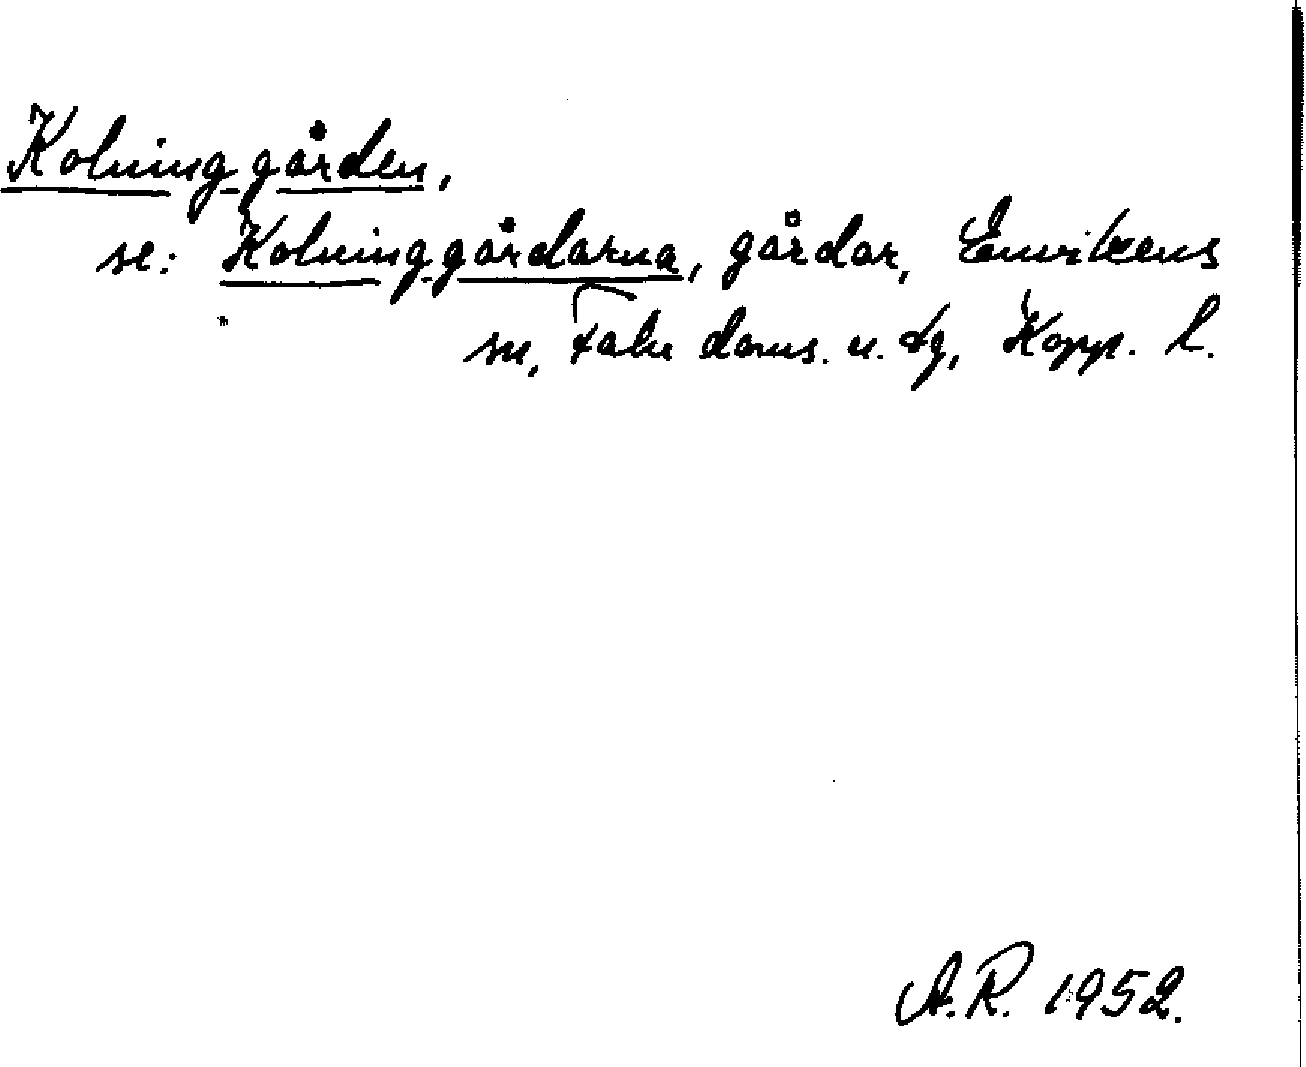 Kolninggården,
se: Kolninggårdarna, gårdar, Envikens
sn, Falu doms. n. dg, Kopp. l.
A.R. 1952.